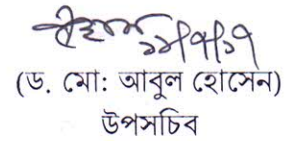 ১৮/৭/১৭
(ড. মো: আবুল হোসেন)
উপসচিব